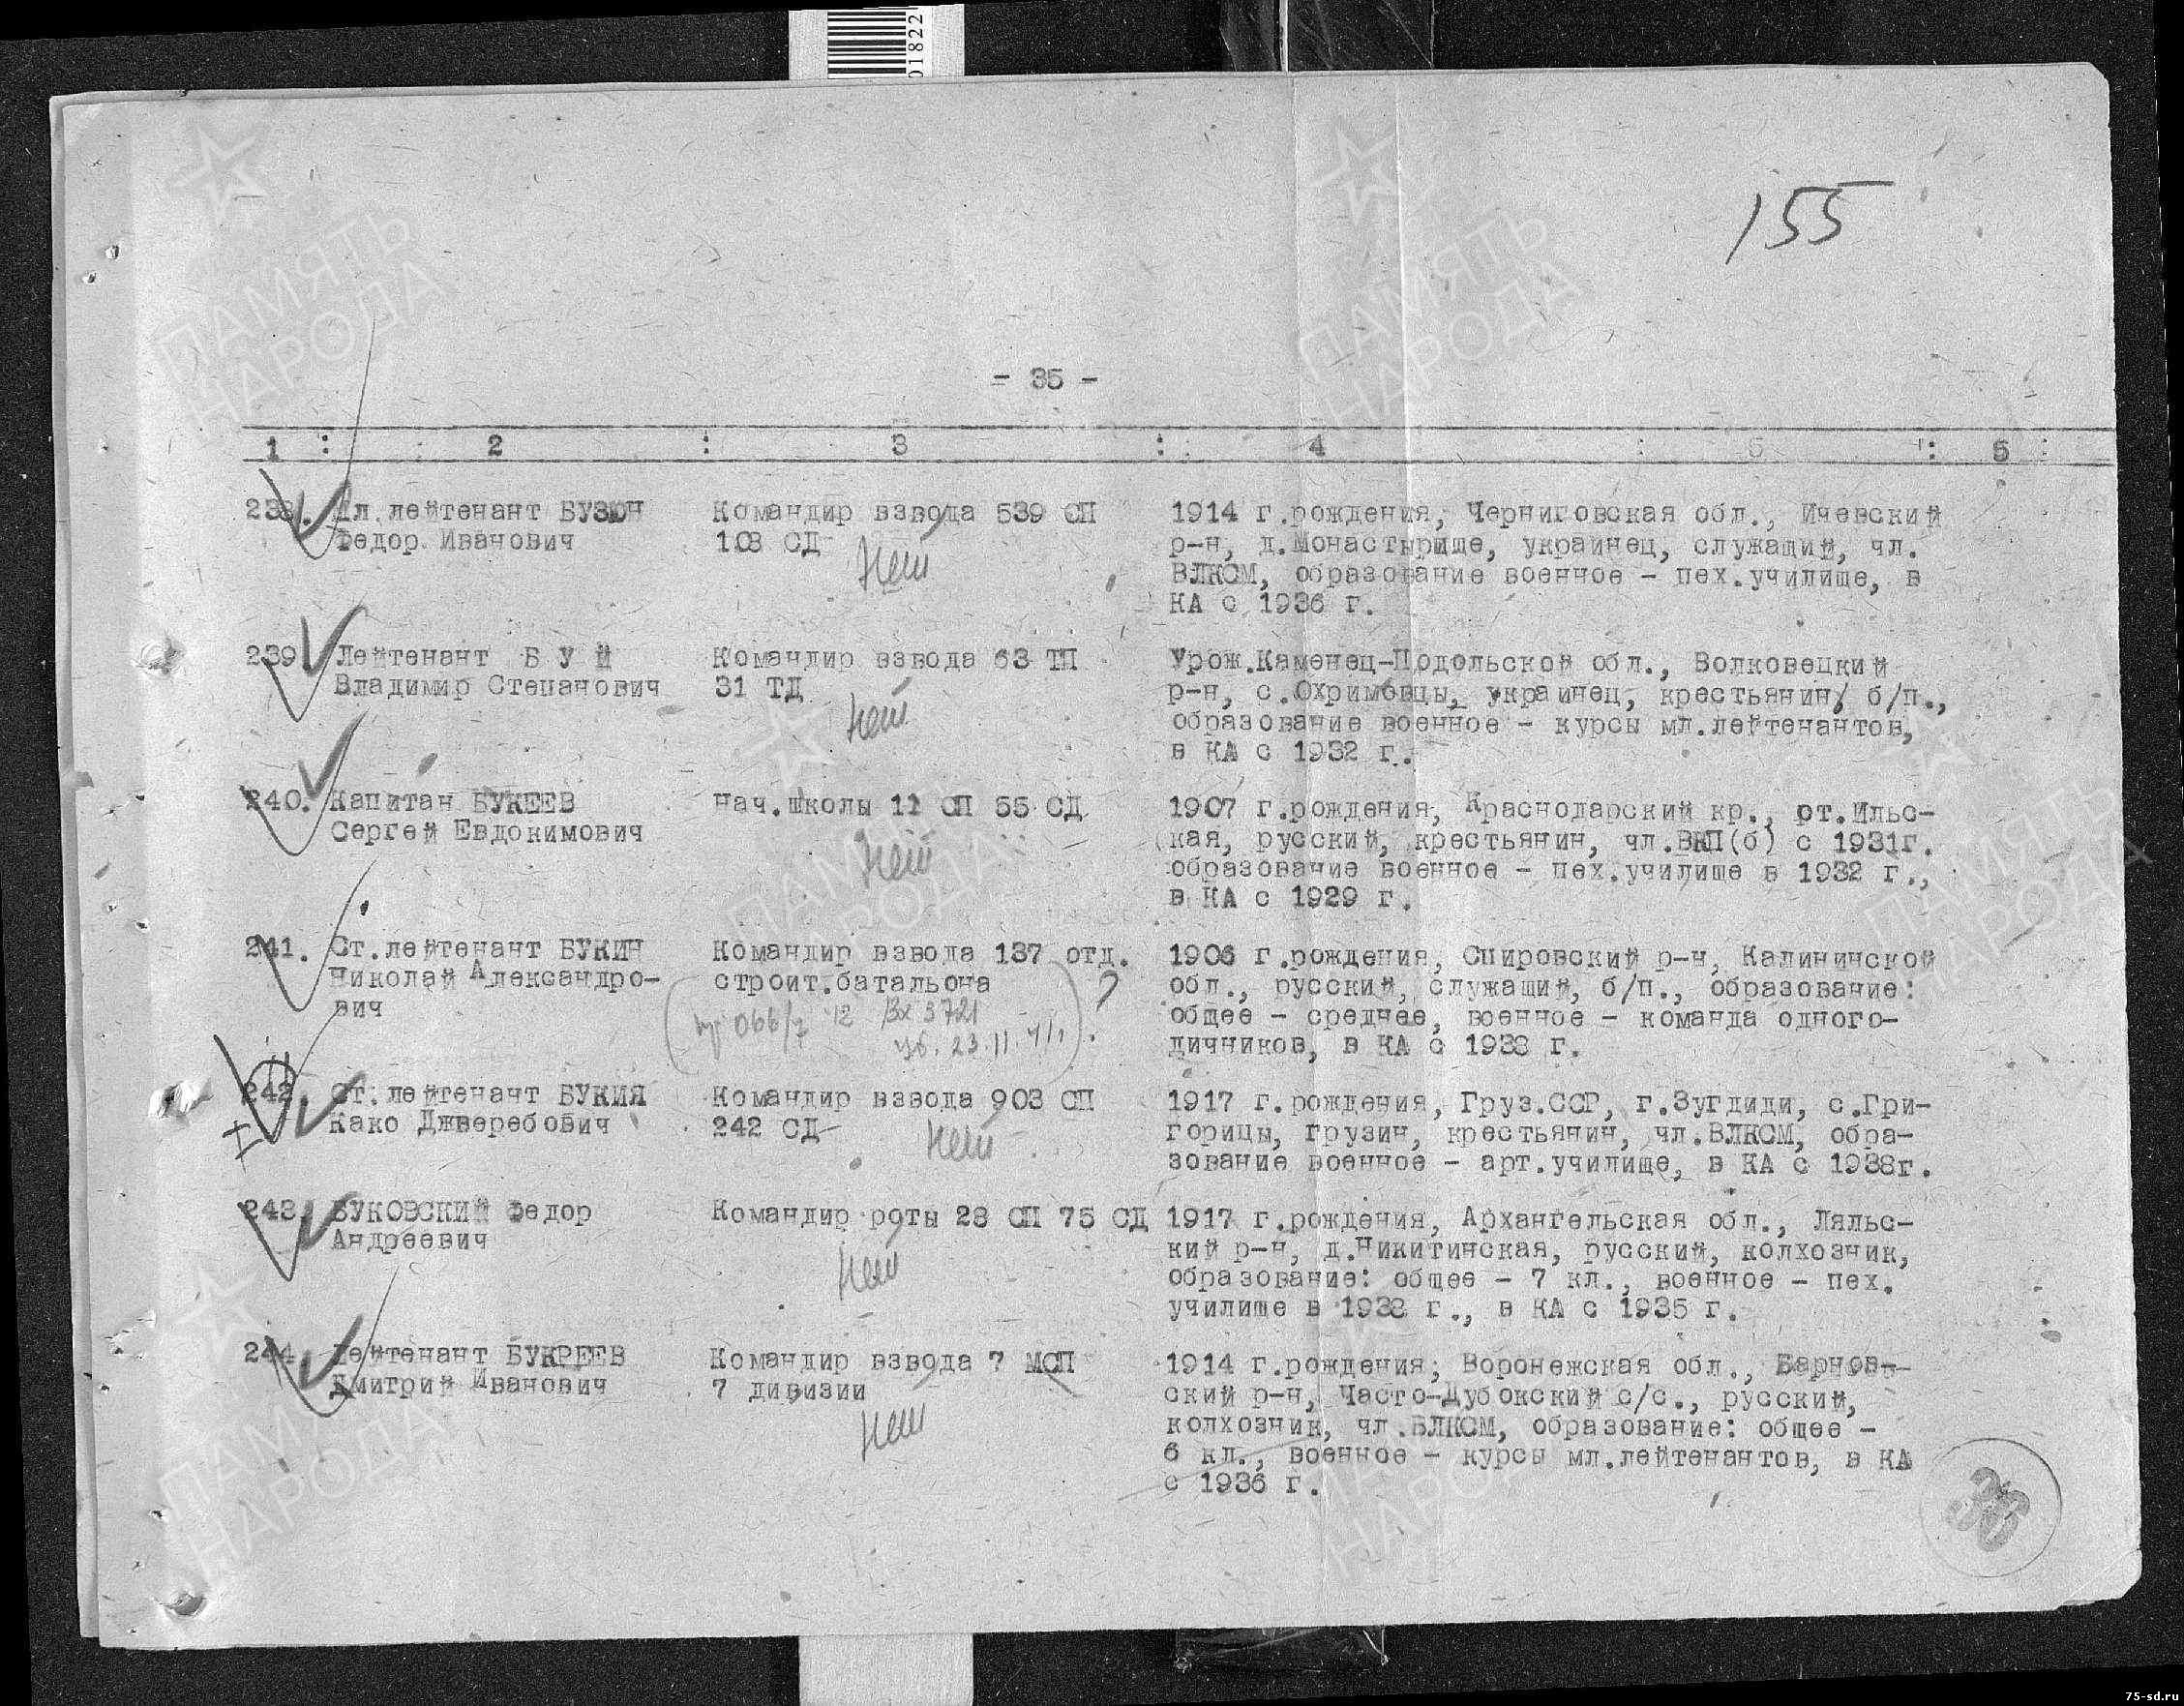 01822
ПАМЯТЬ НАРОДА
155
- 35 -
1 : 2 : 3 : 4 : 5 : 6 :
238. Мл.лейтенант БУЗЮН Командир взвода 539 СП 1914 г.рождения, Черниговская обл., Ичевский
Федор Иванович 108 СД р-н, д.Монастырище, украинец, служащий, чл.
нет ВЛКСМ, образование военное - пех.училище, в
КА с 1936 г.
239. Лейтенант Б У Й Командир взвода 63 ТП Урож.Каменец-Подольской обл., Волковецкий
Владимир Степанович 31 ТД р-н, с.Охримовцы, украинец, крестьянин, б/п.,
нет образование военное - курсы мл.лейтенантов,
в КА с 1932 г.
240. Капитан БУКЕЕВ Нач.школы 11 СП 55 СД 1907 г.рождения, Краснодарский кр., ст.Ильс-
Сергей Евдокимович кая, русский, крестьянин, чл.ВКП(б) с 1931г.
нет образование военное - пех.училище в 1932 г.,
в КА с 1929 г.
241. Ст.лейтенант БУКИН Командир взвода 137 отд. 1906 г.рождения, Спировский р-н, Калининской
Николай Александро- строит.батальона ? обл., русский, служащий, б/п., образование:
вич 066/7 12 Вх 3721 общее - среднее, военное - команда одного-
уб. 23.11.41 дичников, в КА с 1933 г.
242. Ст.лейтенант БУКИЯ Командир взвода 903 СП 1917 г.рождения, Груз.ССР, г.Зугдиди, с.Гри-
Како Джверебович 242 СД нет горицы, грузин, крестьянин, чл.ВЛКСМ, обра-
зование военное - арт.училище, в КА с 1938г.
243. БУКОВСКИЙ Федор Командир роты 28 СП 75 СД 1917 г.рождения, Архангельская обл., Ляльс-
Андреевич кий р-н, д.Никитинская, русский, колхозник,
нет образование: общее - 7 кл., военное - пех.
училище в 1938 г., в КА с 1935 г.
244. Лейтенант БУКРЕЕВ Командир взвода 7 МСП 1914 г.рождения, Воронежская обл., Варнов-
Дмитрий Иванович 7 дивизии ский р-н, Часто-Дубокский с/с., русский,
нет колхозник, чл.ВЛКСМ, образование: общее -
6 кл., военное - курсы мл.лейтенантов, в КА
с 1936 г.
36
75-sd.ru